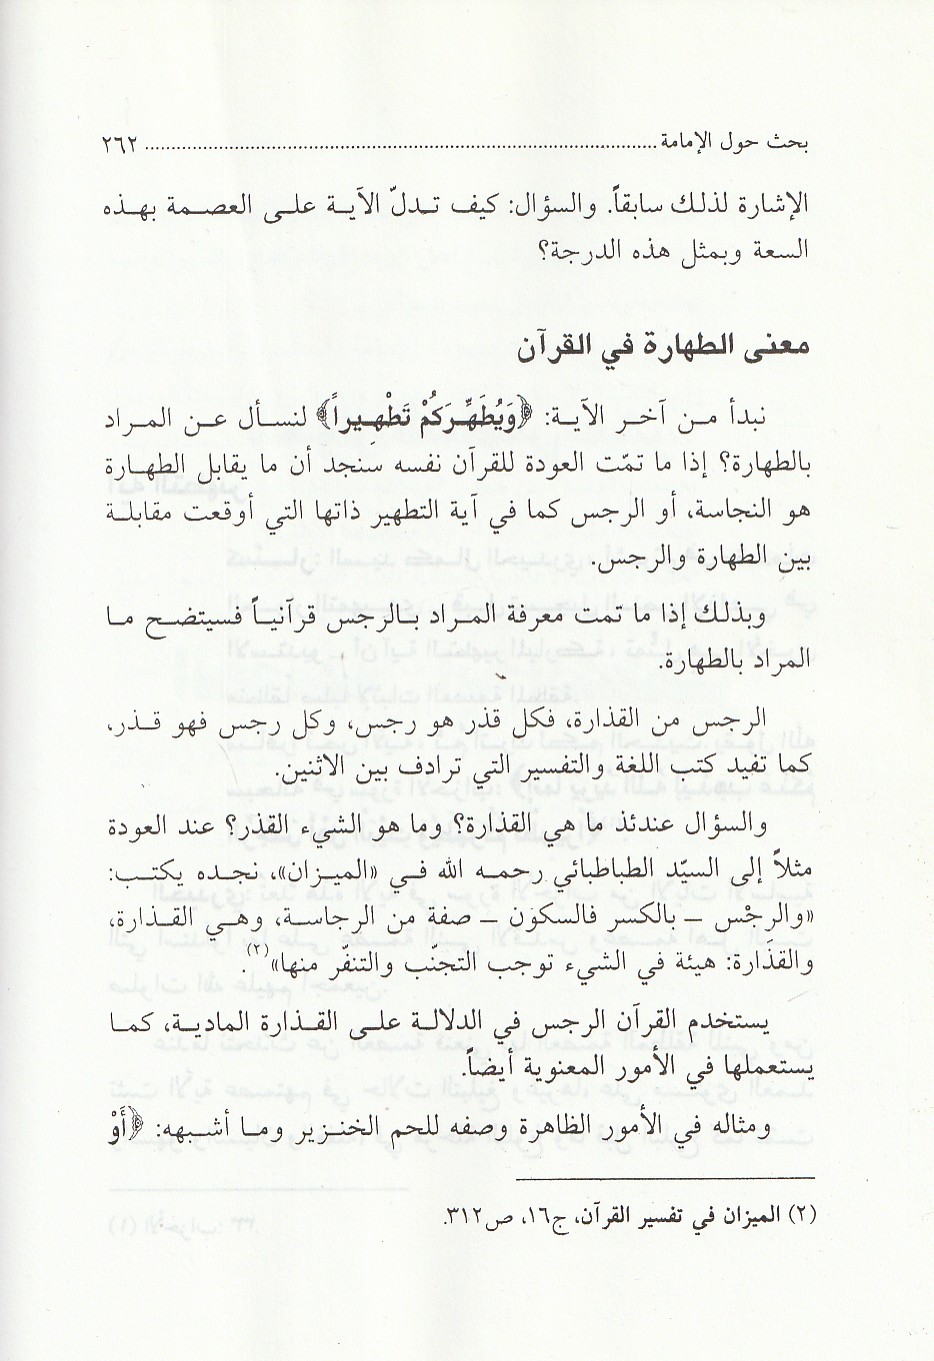 بحث حول الإمامة ........................................................ ٢٦٢
الإشارة لذلك سابقاً. والسؤال: كيف تدلّ الآية على العصمة بهذه
السعة وبمثل هذه الدرجة؟
معنى الطهارة في القرآن
نبدأ من آخر الآية: ﴿وَيُطَهِّرَكُمْ تَطْهِيراً﴾ لنسأل عن المراد
بالطهارة؟ إذا ما تمّت العودة للقرآن نفسه سنجد أن ما يقابل الطهارة
هو النجاسة، أو الرجس كما في آية التطهير ذاتها التي أوقعت مقابلة
بين الطهارة والرجس.
وبذلك إذا ما تمت معرفة المراد بالرجس قرآنياً فسيتضح ما
المراد بالطهارة.
الرجس من القذارة، فكل قذر هو رجس، وكل رجس فهو قذر،
كما تفيد كتب اللغة والتفسير التي ترادف بين الاثنين.
والسؤال عندئذ ما هي القذارة؟ وما هو الشيء القذر؟ عند العودة
مثلاً إلى السيّد الطباطبائي رحمه الله في «الميزان»، نجده يكتب:
«والرِجْس – بالكسر فالسكون – صفة من الرجاسة، وهي القذارة،
والقذَارة: هيئة في الشيء توجب التجنّب والتنفّر منها»(٢).
يستخدم القرآن الرجس في الدلالة على القذارة المادية، كما
يستعملها في الأمور المعنوية أيضاً.
ومثاله في الأمور الظاهرة وصفه للحم الخنزير وما أشبهه: ﴿أَوْ
(٢) الميزان في تفسير القرآن، ج١٦، ص٣١٢.